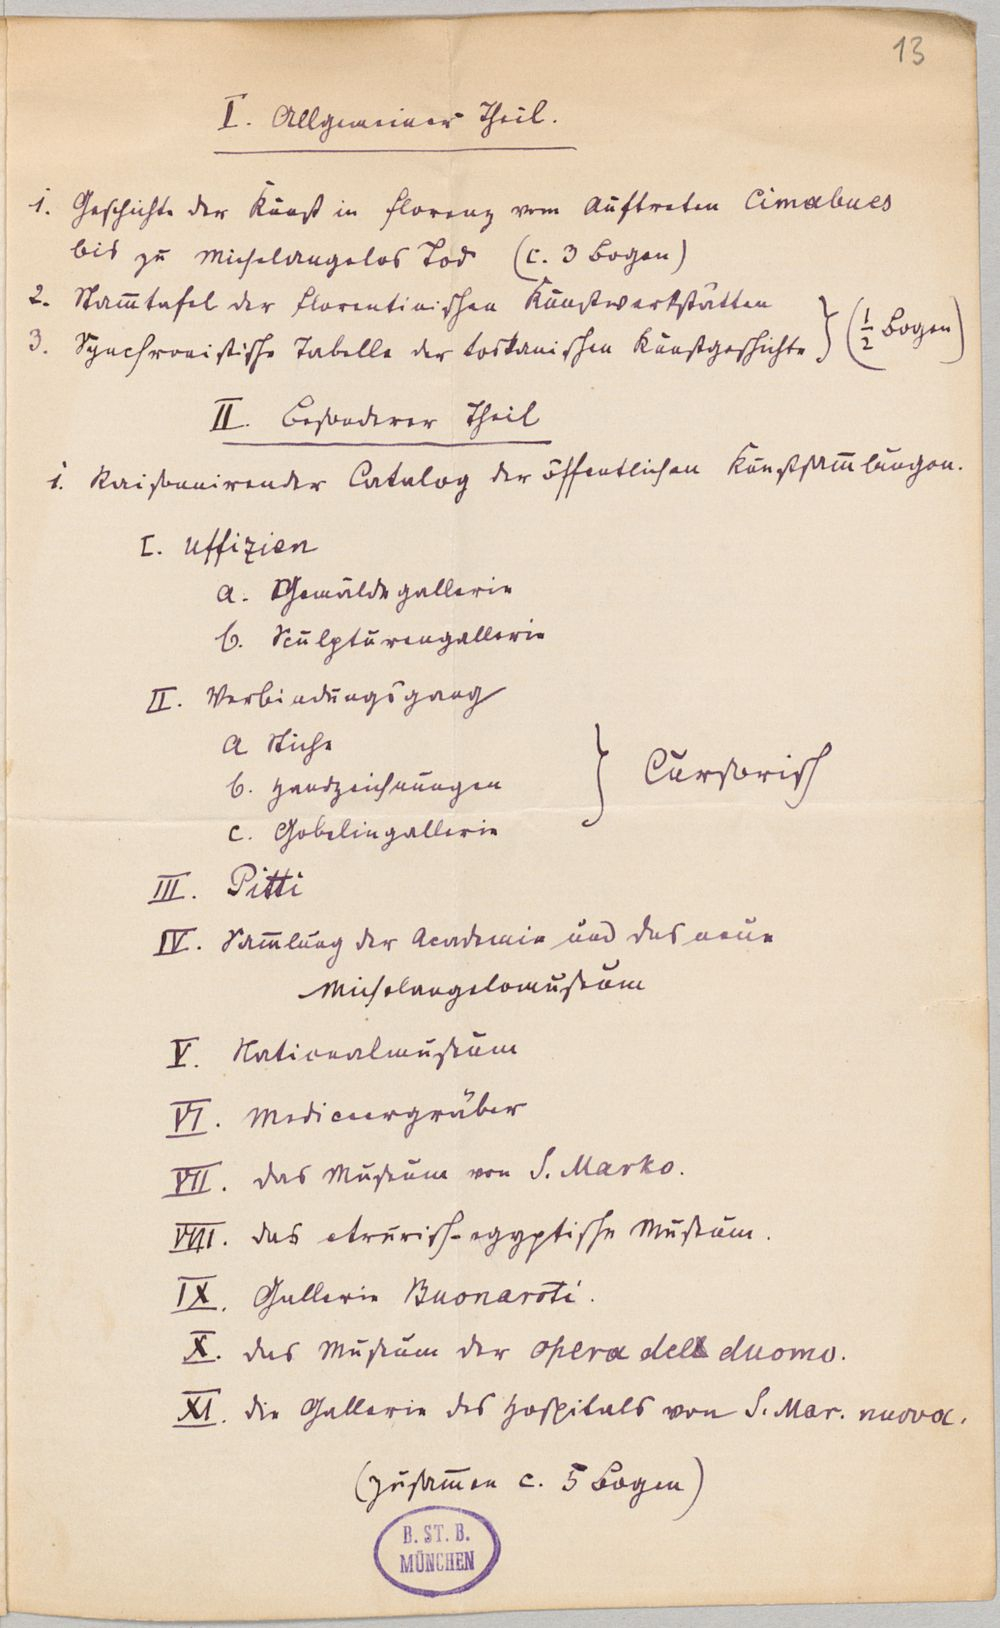 13
I. Allgemeiner Theil.
1. Geschichte der Kunst in Florenz vom Auftreten Cimabues
bis zu Michelangelos Tod (c. 3 Bogen)
2. Stam̅tafel der florentinischen Kunstwerkstätten
3. Synchronistische Tabelle der toskanischen Kunstgeschichte } (1/2 Bogen)
II. Besonderer Theil
1. Raisonnirender Catalog der öffentlichen Kunstsam̅lungen.
I. Uffizien
a. Gemäldegallerie
b. Sculpturengallerie
II. Verbindungsgang
a Stiche
b. Handzeichnungen } Cursorisch
c. Gobelingallerie
III. Pitti
IV. Sam̅lung der Academie und das neue
Michelangelomuseum
V. Nationalmuseum
VI. Mediceergräber
VII. das Museum von S. Marko.
VIII. das etrurisch-egyptische Museum.
IX. Gallerie Buonaroti.
X. das Museum der opera del duomo.
XI. die Gallerie des Hospitals von S. Mar. nuova.
(zusam̅en c. 5 Bogen)
B. ST. B.
MÜNCHEN